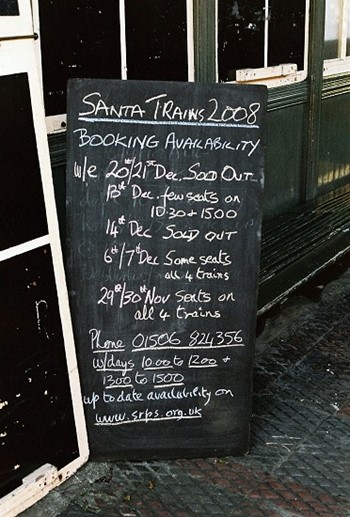 SANTA TRAINS 2008
BOOKING AVAILABILITY
w/e 20th/21st Dec. SOLD OUT
13th Dec. few seats on
10.30 + 15.00
14th Dec SOLD OUT
6th/7th Dec Some seats
all 4 trains
29th/30th Nov Seats on
all 4 trains
Phone 01506 824356
w/days 10.00 to 1200 +
1300 to 1500
up to date availability on
www.srps.org.uk